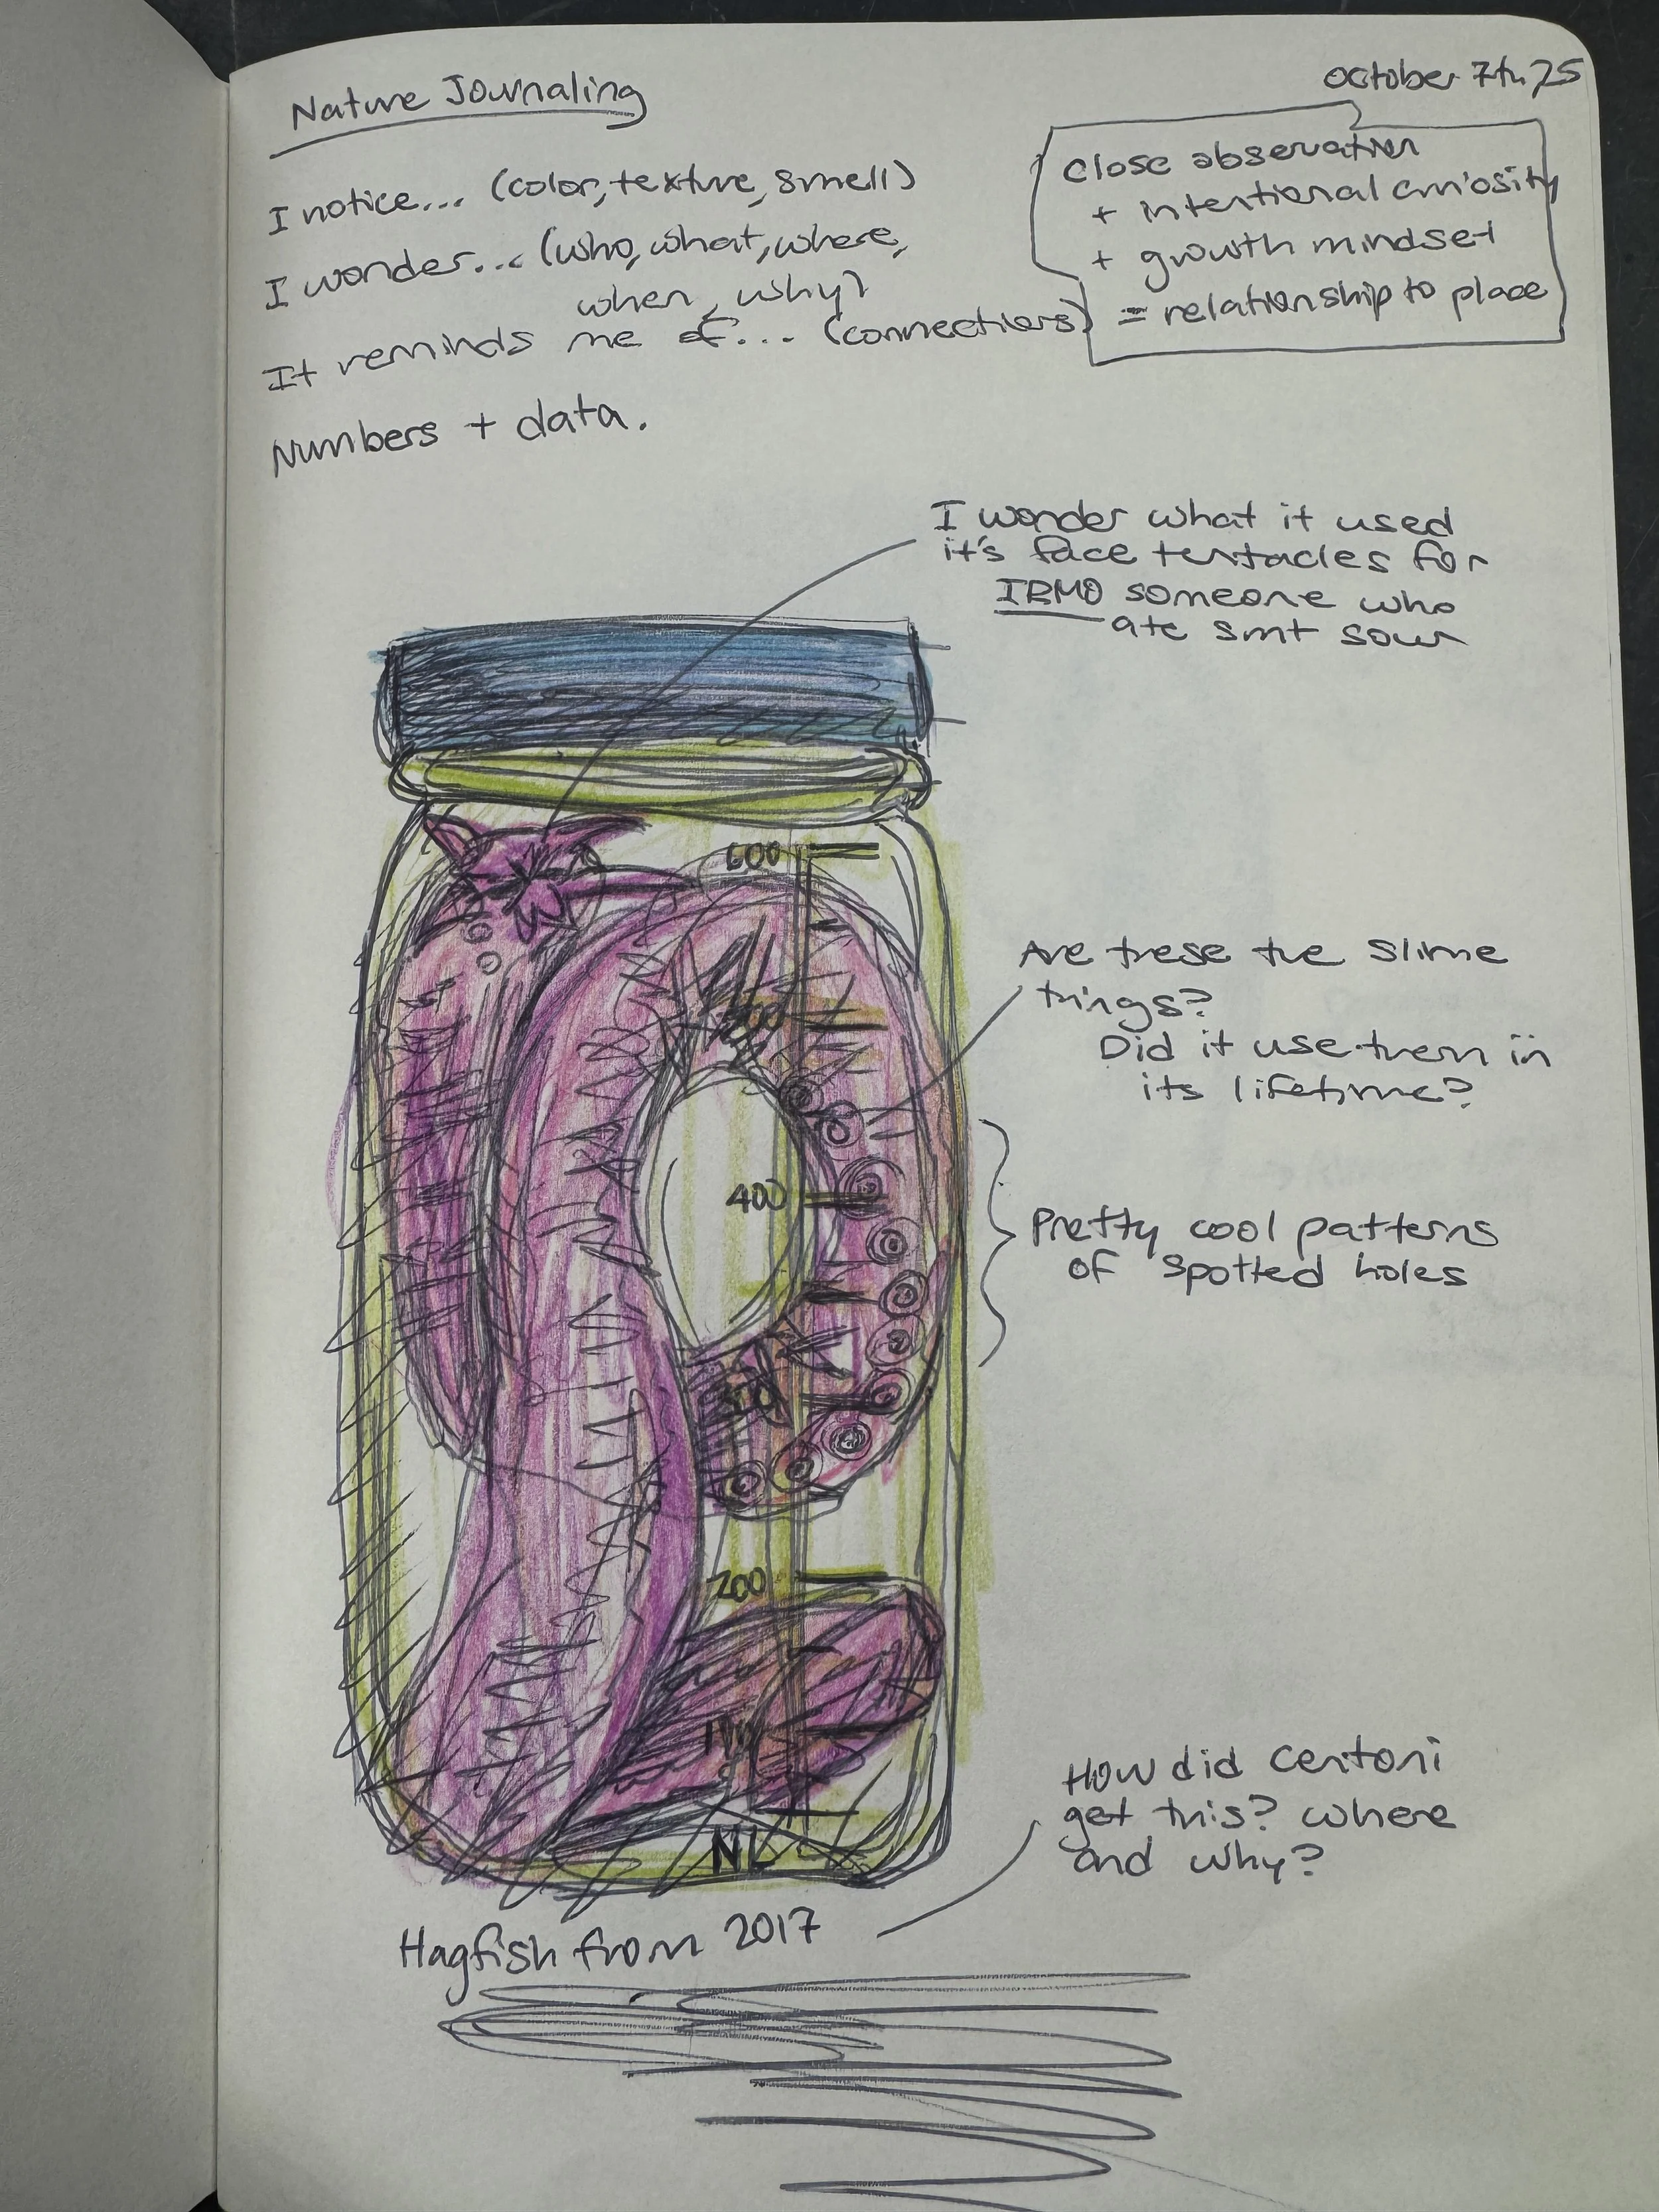 Nature Journaling
October 7th, 25
I notice... (color, texture, smell)
I wonder... (who, what, where,
when, why)
It reminds me of... (connections)
Numbers + data.
close observation
+ intentional curiosity
+ growth mindset
= relationship to place
I wonder what it used
it's face tentacles for
IRMO someone who
ate smt sour
600
Are these the slime
things?
Did it use them in
its lifetime?
400
Pretty cool patterns
of spotted holes
200
How did Centoni
get this? where
and why?
Hagfish from 2017